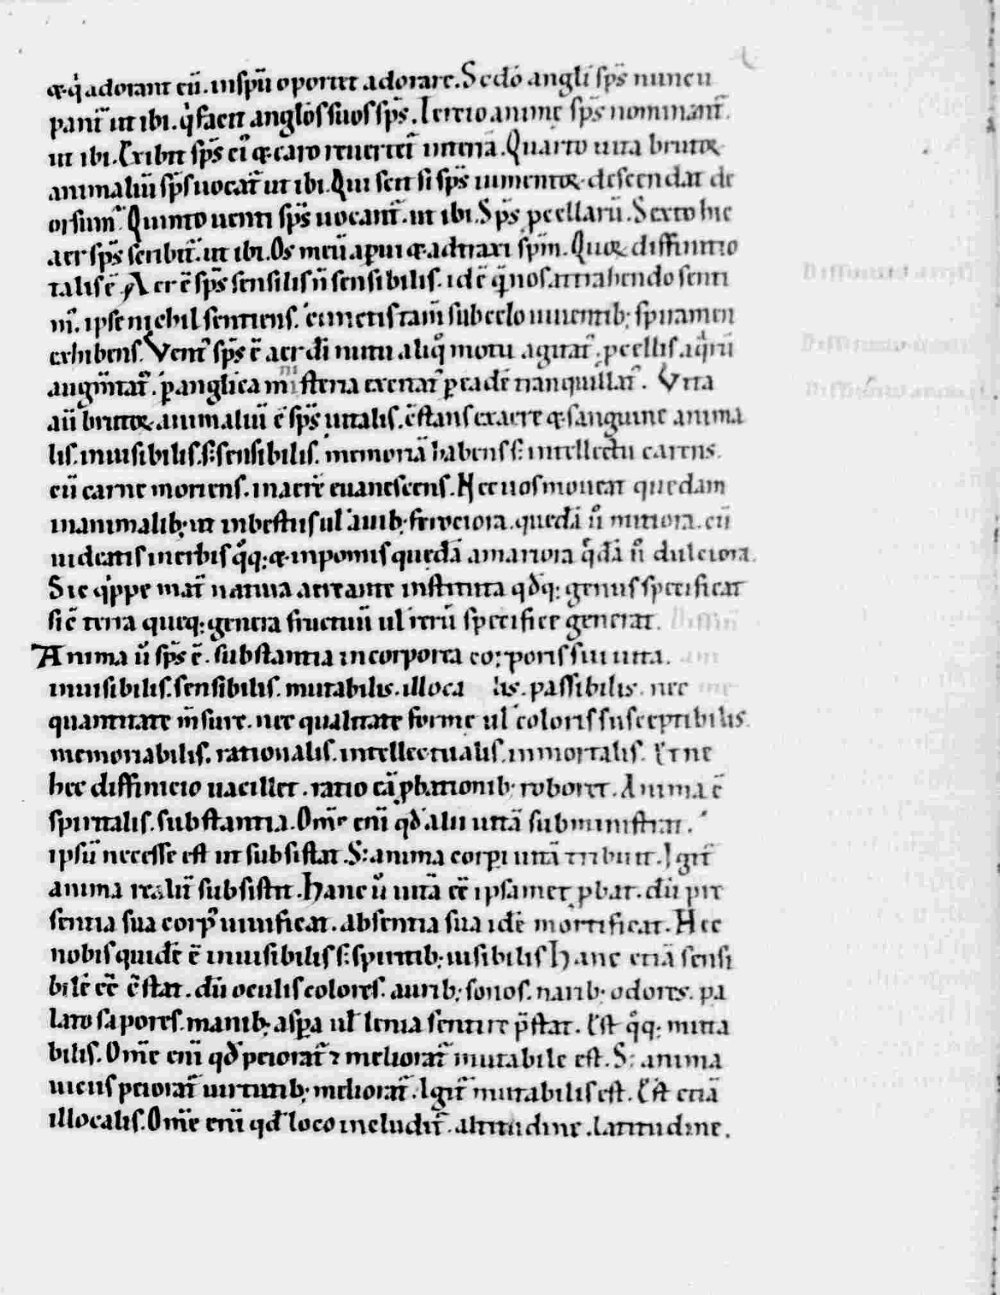 & qͥ adorant eū. in spū oportet adorare. Secdo angli sps̄ nuncu
pant᷑ ut ibi. qͥ facit anglos suos sps̄. Tertio anime sps̄ nominant᷑.
ut ibi. Exibit sps̄ ei᷒ & caro reuertet᷑ in terrā. Quarto uita brutoꝝ
animaliū sps̄ uocat᷑ ut ibi. Qui scit si sps̄ iumentoꝝ descendat de
orsum. Quinto uenti sps̄ uocant᷑. ut ibi. Sps̄ ꝓcellarū. Sexto hic
aer sps̄ scribit᷑. ut ibi. Os meū aperui & adtraxi spm̄. Quoꝝ diffinitio
talis ē. Aer ē sps̄ sensilis n̄ sensibilis. idē q̄ nos. attrahendo senti
m᷒. ipse nichil sentiens. cunctis tam̄ sub celo uiuentib; spiramen
exhibens. Vent᷒ sps̄ ē aer dī nutu aliqͦ motu agitat᷑. ꝓcellis aqͣrū
augm̄tat᷑. ꝑ anglica misteria excitat᷑ ꝑ eadē tranquillat᷑. Vita
aū brutoꝝ animaliū ē sps̄ uitalis. cs̄tans ex aere & sanguine anima
lis. inuisibilis. s; sensibilis. memoriā habens s; intellectu carens.
cū carne moriens. in aere euanescens. Nec uos moueat quedam
in animalib; ut in bestiis ul auib; ferociora. quedā ū mitiora. cū
uideatis in erbis qͦq; & in pomis quedā amariora qͣdā ū dulciora.
Sic qͥppe mat᷑ natura a creante instituta qd̄q; genus specificat
sic̄ terra queq; genera fructuū ul rerū specifice generat.
Anima ū sps̄ ē. substantia incorporea corporis sui uita.
inuisibilis. sensibilis. mutabilis. illoca lis. passibilis. nec
quantitate m̄sure. nec qualitate forme ul coloris susceptibilis.
memorabilis. rationalis. intellectualis. inmortalis. Et ne
hec diffinicio uacillet. ratio eā ꝓbationib; roboret. Anima ē
spiritalis. substantia. Om̄e eni qd̄ alii uitā subministrat.
ipsū necesse est ut subsistat. S; anima corpi uitā tribuit. Igit᷑
anima realit᷑ subsistit. Hanc ū uitā ēē ipsamet ꝓbat. dū pre
sentia sua corp᷒ uiuificat. absentia sua idē mortificat. Hec
nobis quidē ē inuisibilis s; spiritib; uisibilis Hanc etiā sensi
bilē ēē cs̄tat. dū oculis colores. aurib; sonos. narib; odores. pa
lato sapores. manib; aspa ul lenia sentire ps̄tat. Est qͦq; muta
bilis. Om̄e eni qd̄ peiorat᷑ ⁊ meliorat᷑ mutabile est. S; anima
uiciis peiorat᷑ uirtutib; meliorat᷑. Igit᷑ mutabilis est. Est etiā
illocalis. Om̄e eni qd̄ loco includit᷑. altitudine. latitudine.